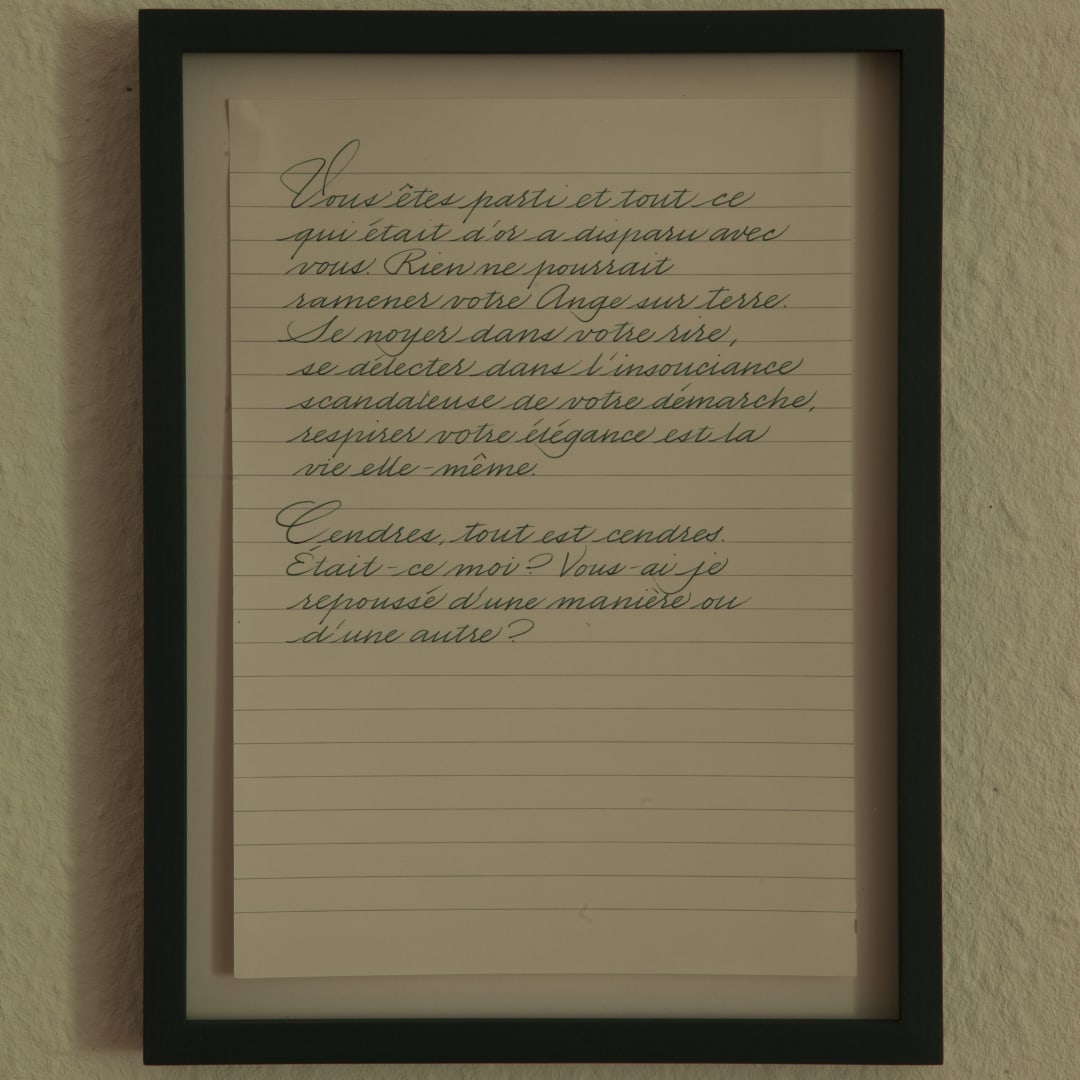 Vous êtes parti et tout ce
qui était d'or a disparu avec
vous. Rien ne pourrait
ramener votre Ange sur terre.
Se noyer dans votre rire,
se délecter dans l'insouciance
scandaleuse de votre démarche,
respirer votre élégance est la
vie elle-même.
Cendres, tout est cendres.
Était-ce moi? Vous-ai je
repoussé d'une manière ou
d'une autre?